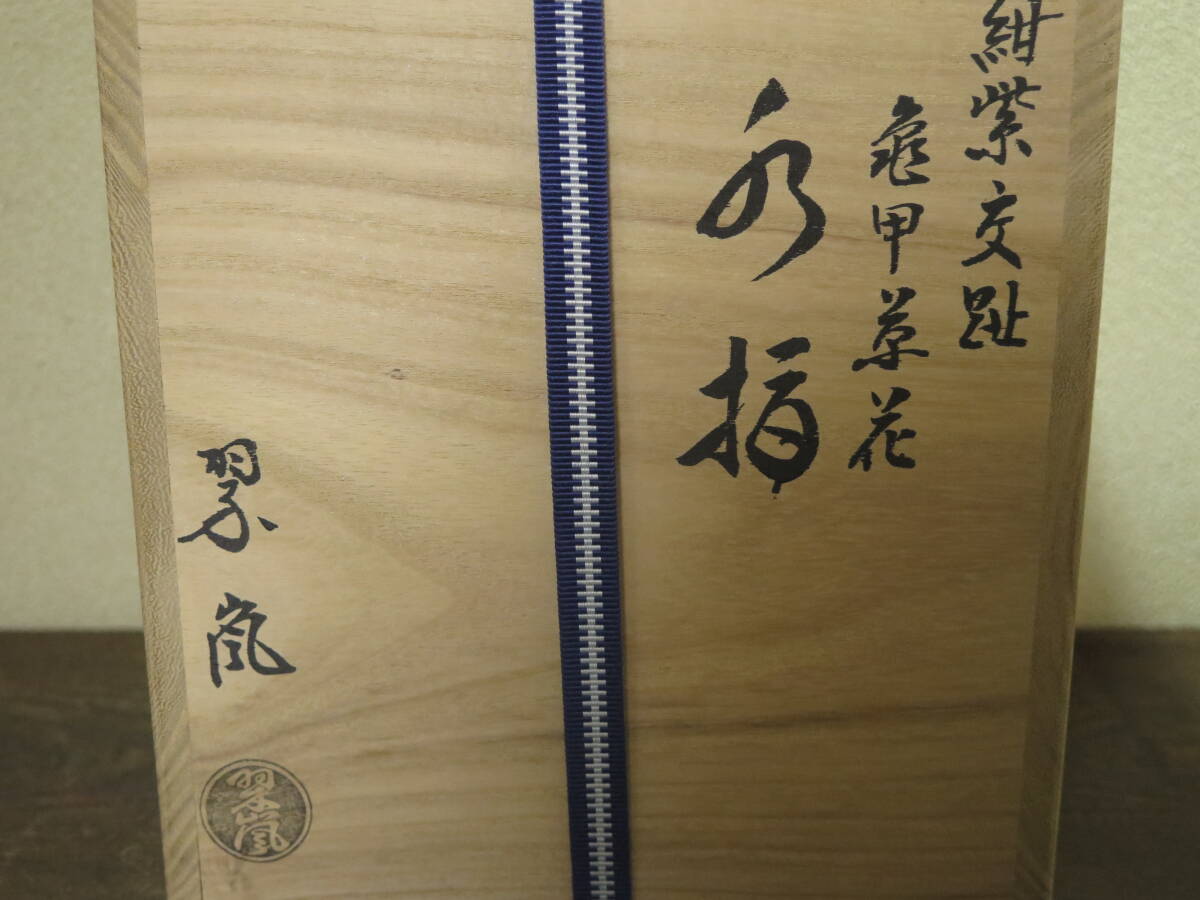 紺紫交趾
亀甲草花
水指
翠嵐
翠嵐